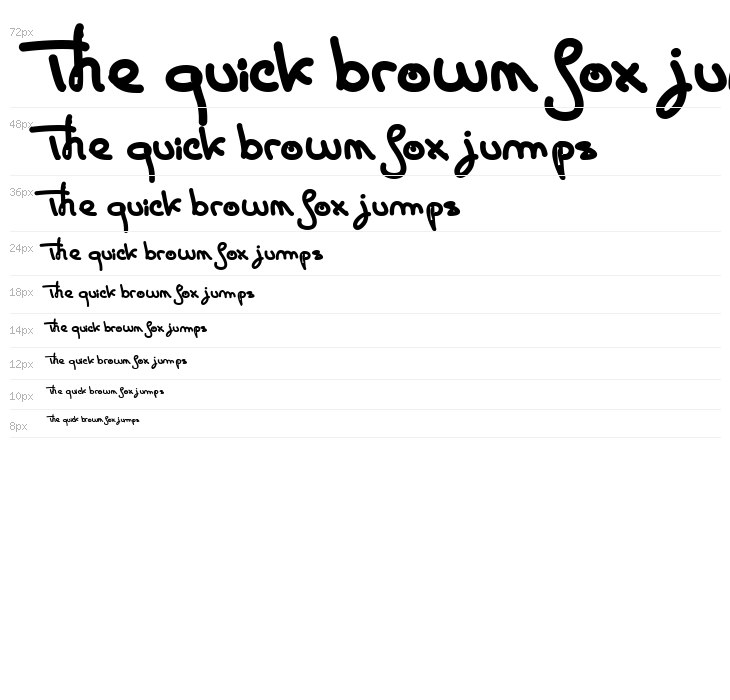 72px The quick brown fox ju
48px The quick brown fox jumps
36px The quick brown fox jumps
24px The quick brown fox jumps
18px The quick brown fox jumps
14px The quick brown fox jumps
12px The quick brown fox jumps
10px The quick brown fox jumps
8px The quick brown fox jumps